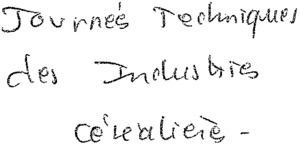 Journées Techniques
des Industries
céréalières -